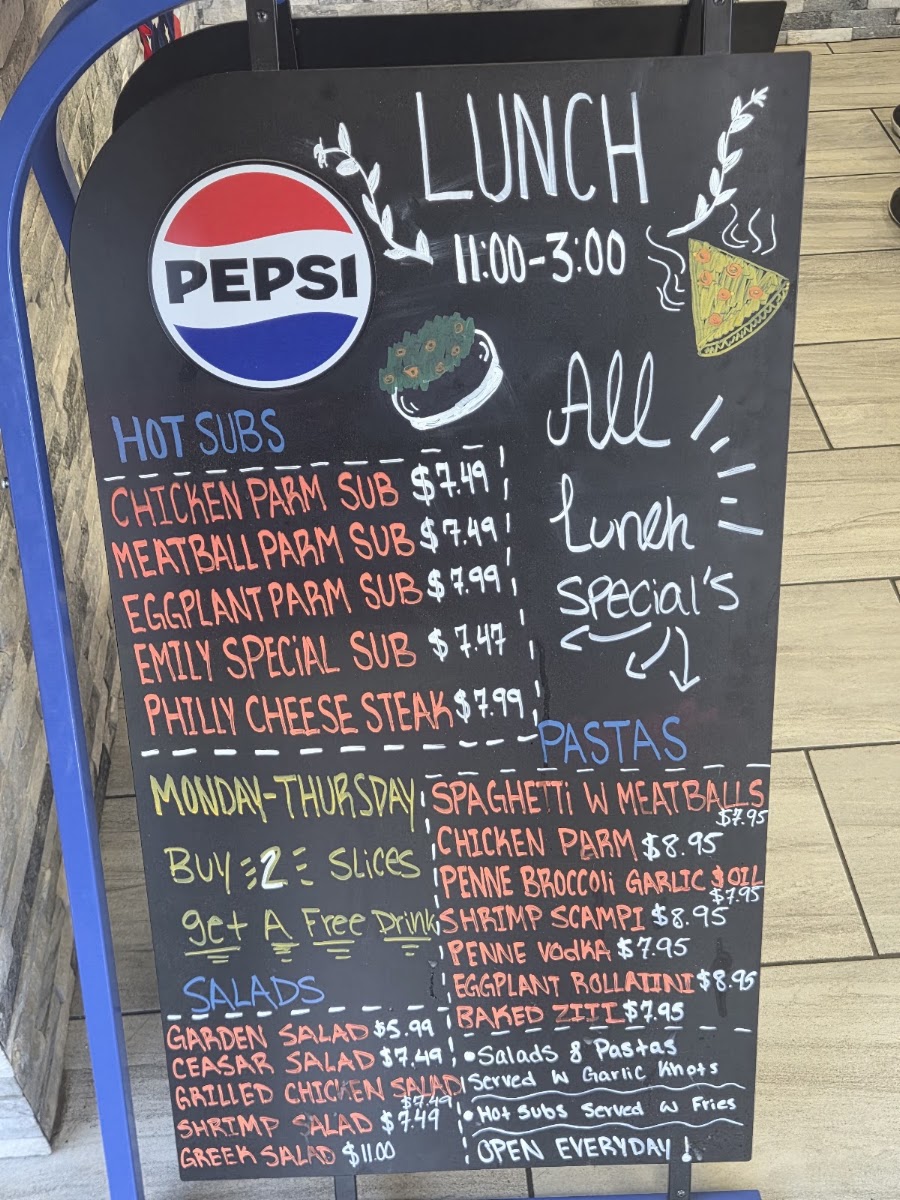 LUNCH
11:00-3:00
PEPSI
All
Lunch
SPECIAL'S
HOT SUBS
CHICKEN PARM SUB $7.49
MEATBALL PARM SUB $7.49
EGGPLANT PARM SUB $7.99
EMILY SPECIAL SUB $7.47
PHILLY CHEESE STEAK $7.99
MONDAY-THURSDAY
BUY 2 SLICES
get A Free Drink
PASTAS
SPAGHETTI W MEATBALLS
$7.95
CHICKEN PARM $8.95
PENNE BROCCOLI GARLIC & OIL
$7.95
SHRIMP SCAMPI $8.95
PENNE VODKA $7.95
EGGPLANT ROLLATINI $8.95
BAKED ZITI $7.95
SALADS
GARDEN SALAD $5.99
CEASAR SALAD $7.49
GRILLED CHICKEN SALAD
$7.49
SHRIMP SALAD $7.49
GREEK SALAD $11.00
• Salads & Pastas
Served W Garlic Knots
• Hot Subs Served W Fries
OPEN EVERYDAY!